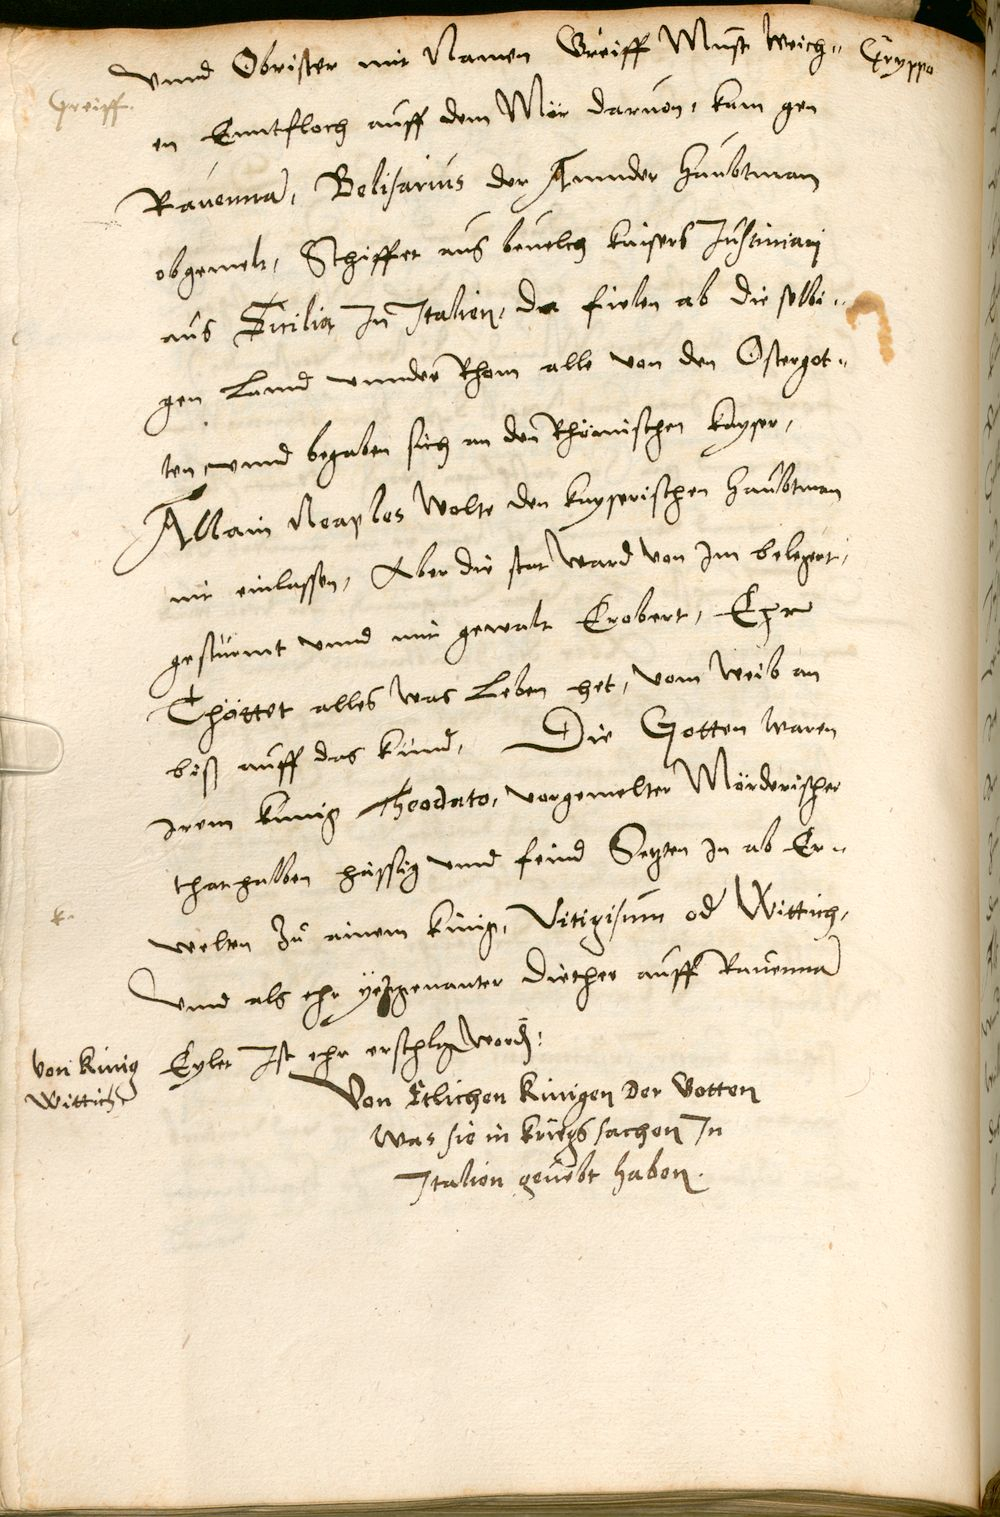 vnnd Obrister mit Namen Greiff Must Weich=
Gryppo
Greiff.
en Enntfloch auff dem Mör daruon, kam gen
Rauenna, Belisarius der Annder Haubtman
obgemelt, Schiffet aus beuelch kaisers Justiniani
aus Sicilia In Italien, da fielen ab die selbi=
gen Lannd vnnder Rhom alle von den Ostergot=
ten vnnd begaben sich an den Rhömischen kayser,
Allain Neaples Wolte den kayserischen Haubtman
nit einlassen, Aber die stat Ward von Im belegert,
gestürmt vnnd mit gewalt Erobert, Ehr
Thöttet alles was Leben het, vom weib an
biß auff das kind, Die Gotten waren
irem kunig Theodato, vorgemelter Mörderischer
that halben hässig vnnd feind Setzten In ab Er=
welten Zu ainem künig, Vitigisum od Wittich,
vnnd als ehr yetzgenanter Diether auff Rauenna
Eylet Ist ehr erschlg word:
von Künig
Wittich
Von Etlichen Künigen Der Gotten
Was sie in kriegs sachen In
Italien geuebt haben.